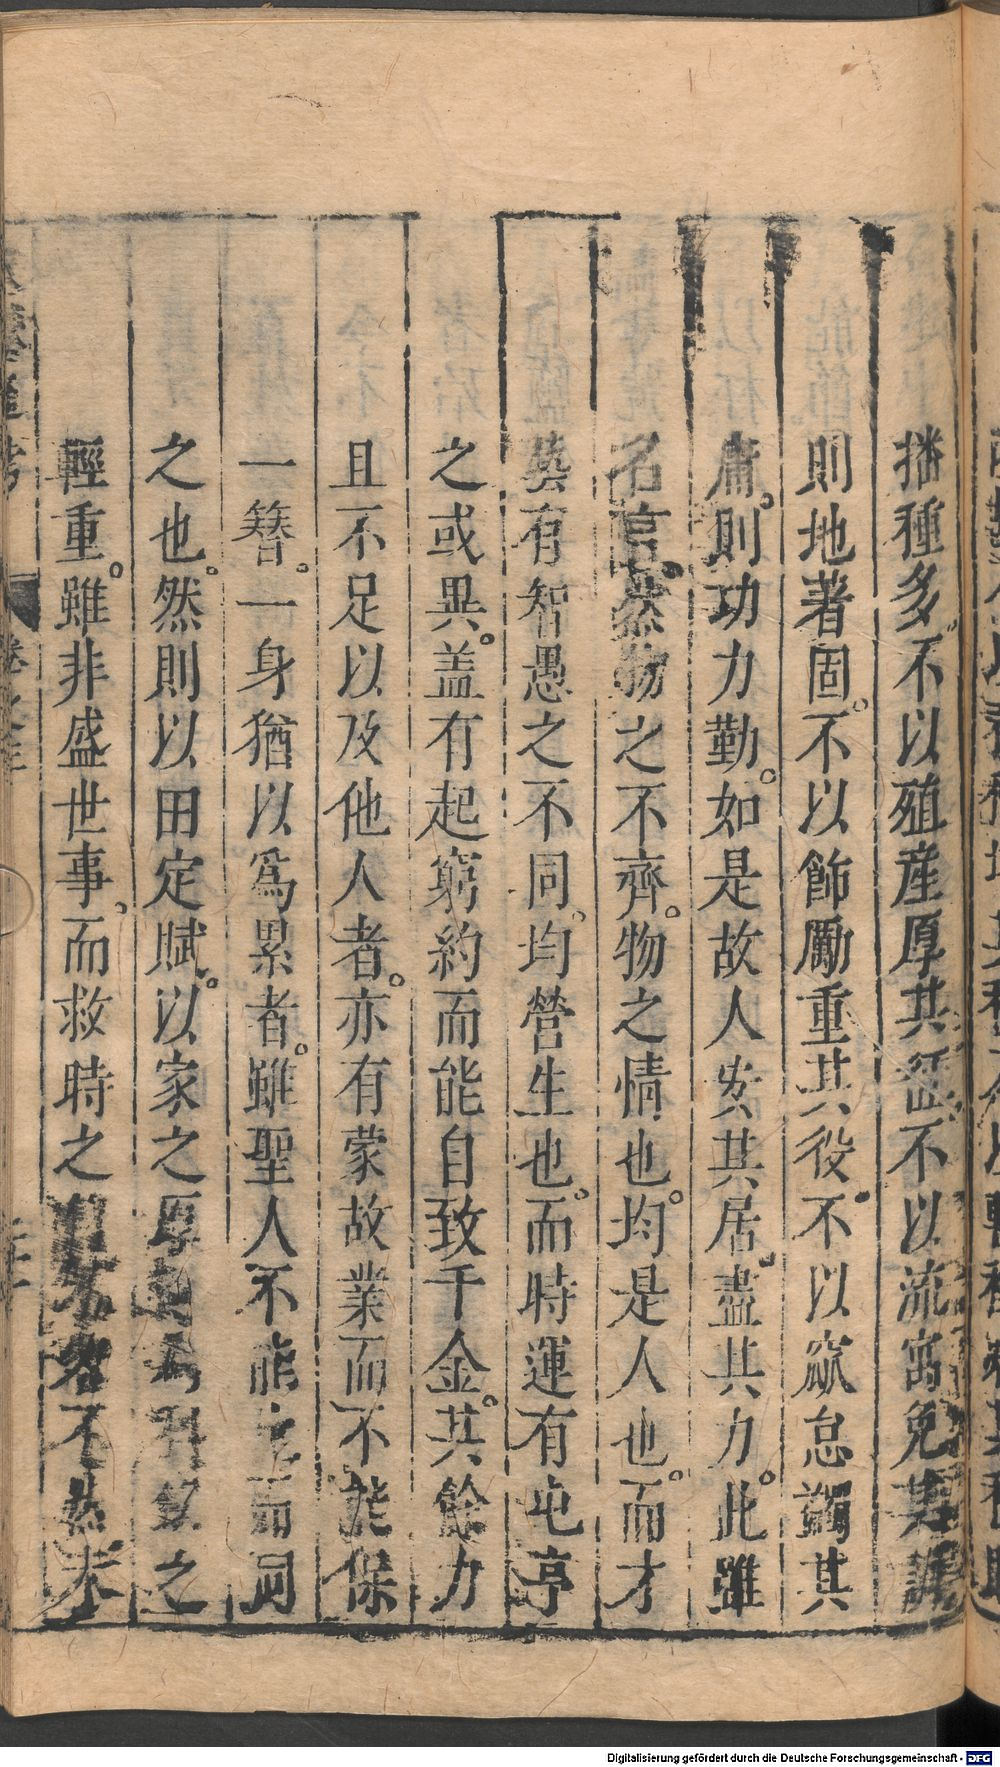 播種多不以殖產厚其征不以流寓免其調
則地著固不以飾勵重其役不以窳怠蠲其
庸則功力勤如是故人安其居盡其力此雖
名言然物之不齊物之情也均是人也而才
藝有智愚之不同均營生也而時運有屯亭
之或異盖有起窮約而能自致千金其餘力
且不足以及他人者亦有蒙故業而不能保
一簪一身猶以爲累者雖聖人不能
之也然則以田定賦以家之厚 之
輕重雖非盛世事而救時之 不 未
Digitalisierung gefördert durch die Deutsche Forschungsgemeinschaft - DFG